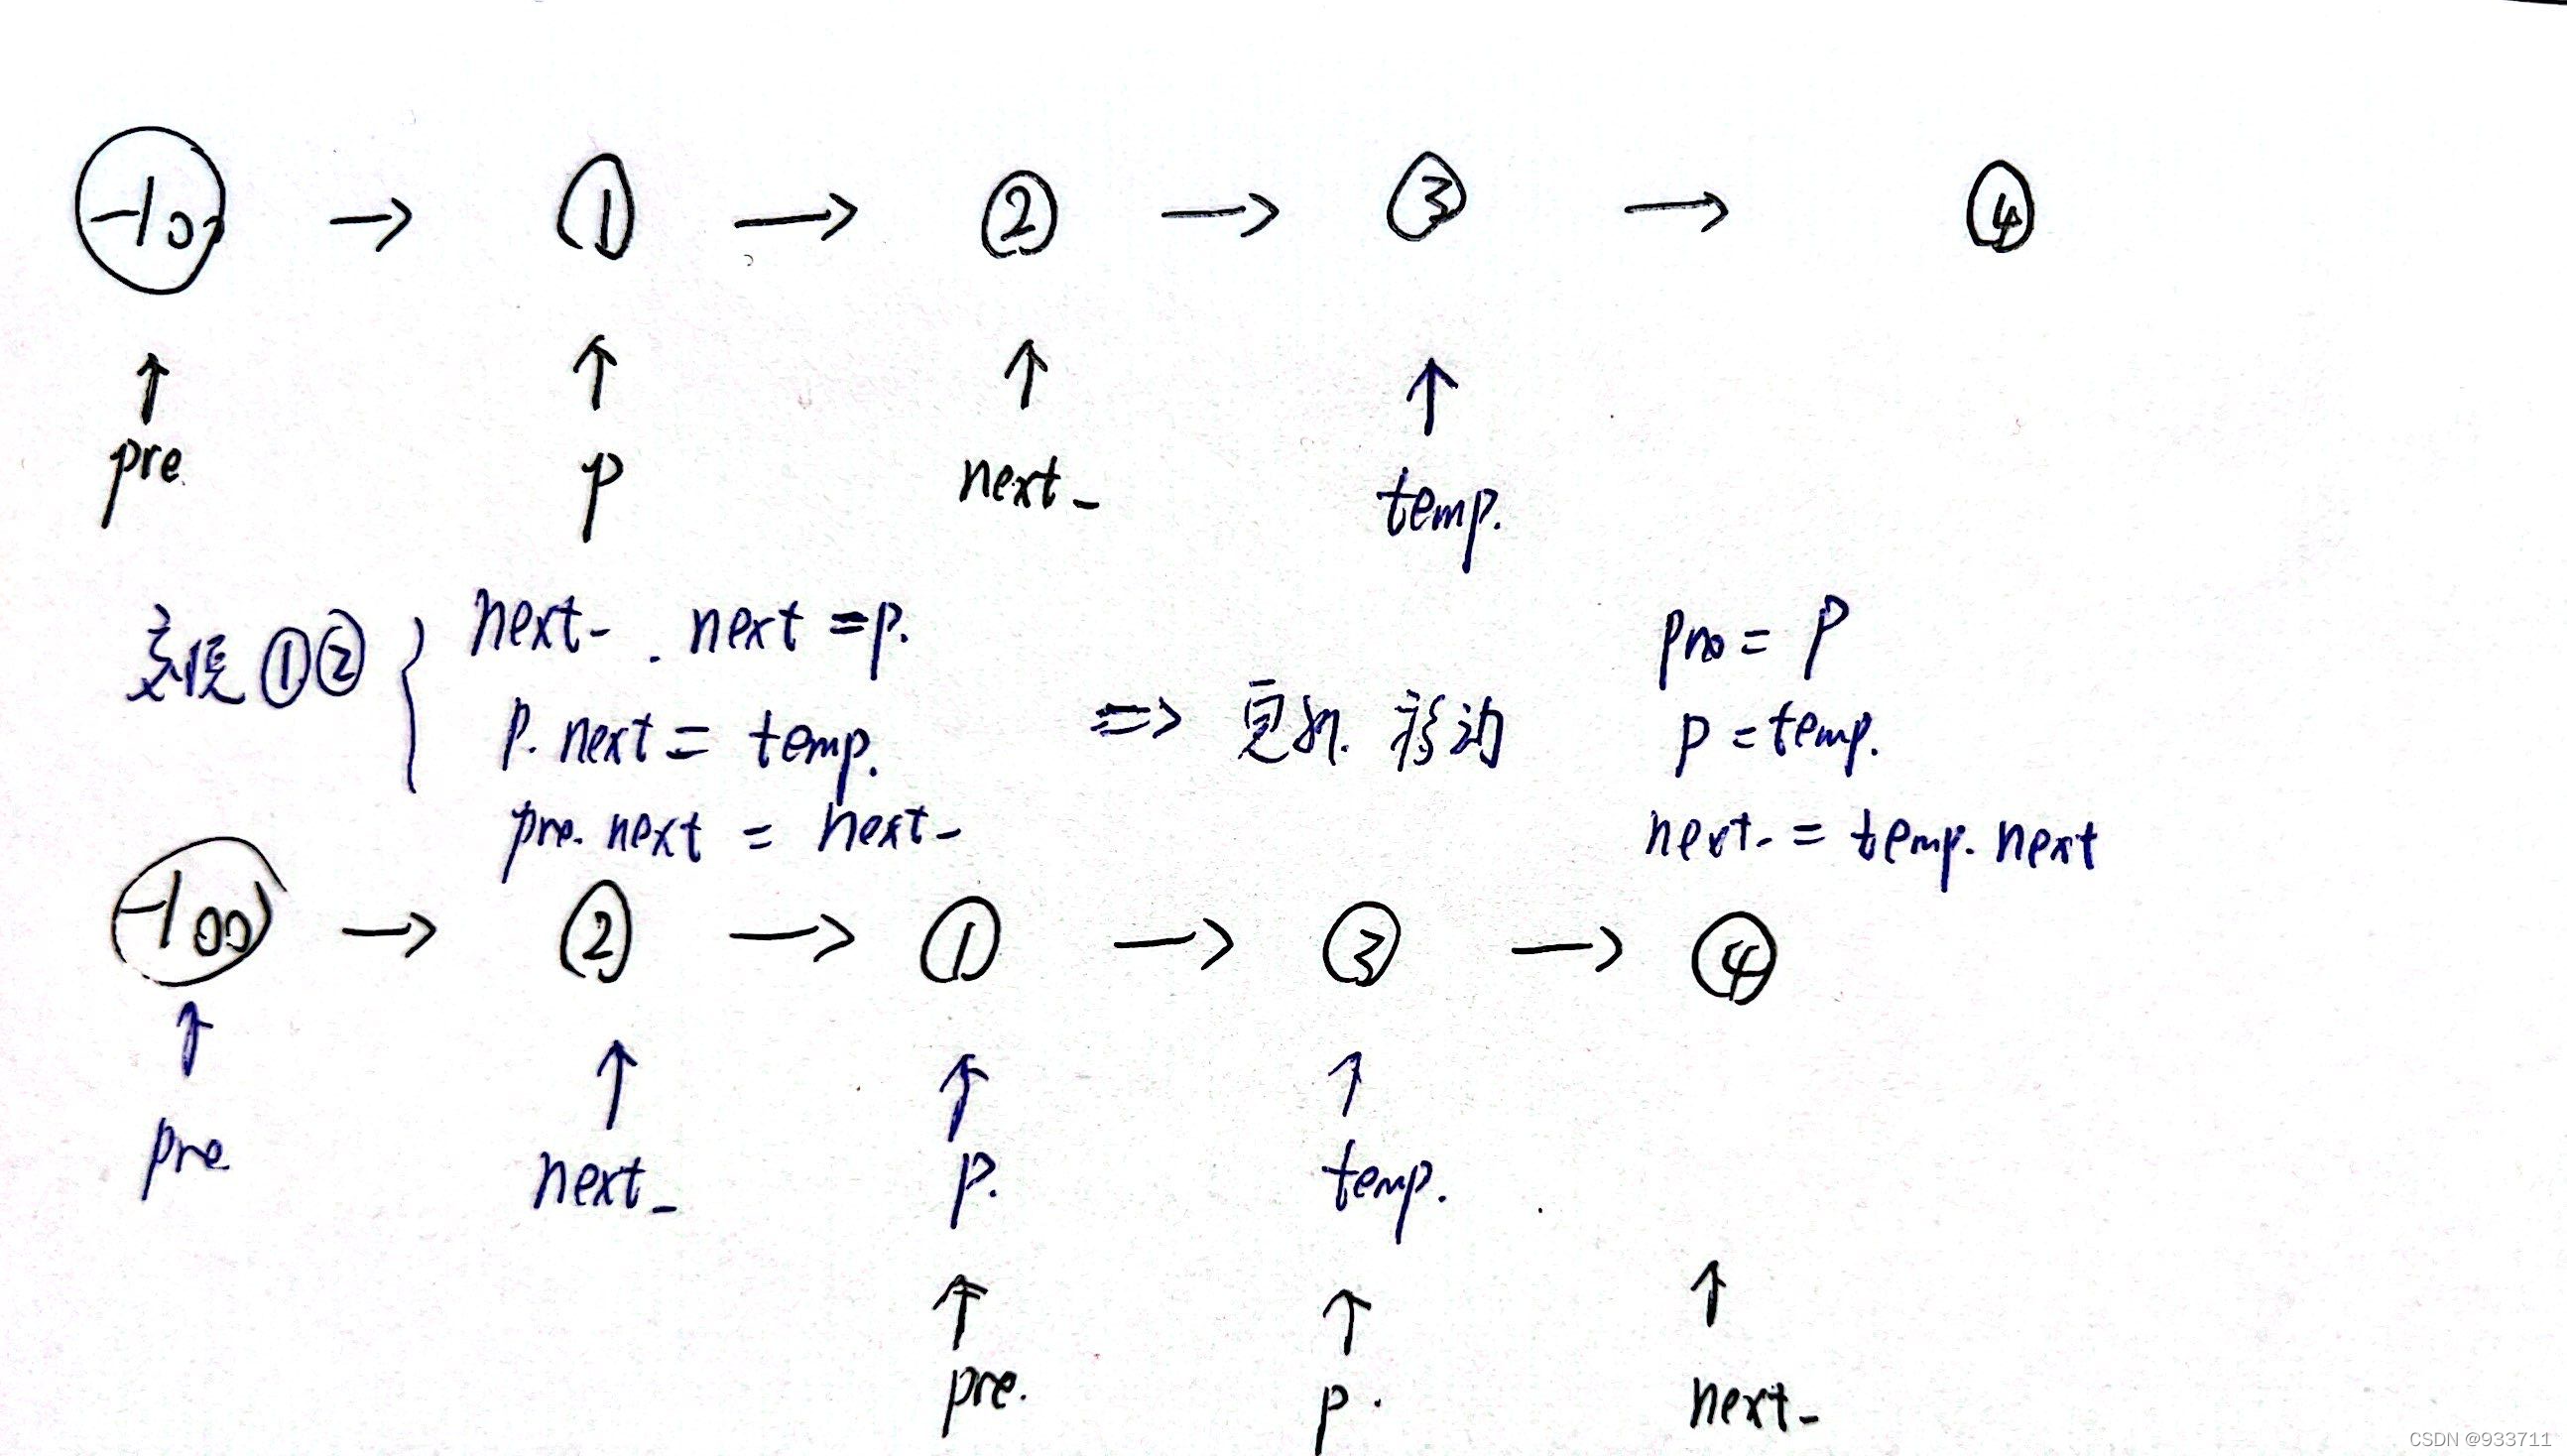 -100 → ① → ② → ③ → ④
↑ ↑ ↑ ↑
pre p next_ temp.
交换①② { next_ . next = p.
p. next = temp.
pre. next = next_
=> 更新. 移动
pre = p
p = temp.
next_ = temp. next
-100 → ② → ① → ③ → ④
↑ ↑ ↑ ↑
pre next_ p. temp.
↑ ↑ ↑
pre. p. next_
CSDN @933711